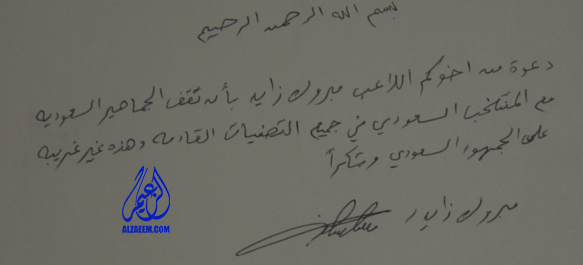 بسم الله الرحمن الرحيم
دعوة من اخوكم اللاعب مبروك زايد بأن تقف الجماهير السعوديه
مع المنتخب السعودي في جميع التصفيات القادمه وهذه غير غريبه
على الجمهور السعودي وشكراً
مبروك زايد
الزعيم
ALZAEEM.COM